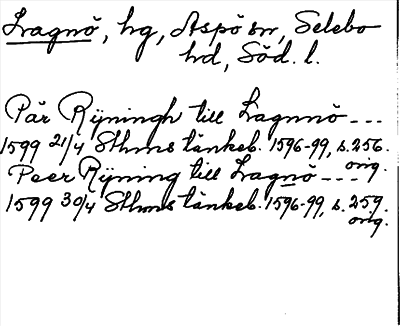 Lagnö, hg, Aspö sn, Selebo
hd, Söd. l.
Pär Rijningh till Lagnnö ---
1599 21/4 Sthms tänkeb. 1596-99, s. 256.
orig.
Peer Rijning till Lagnö ---
1599 30/4 Sthms tänkeb. 1596-99, s. 259.
orig.